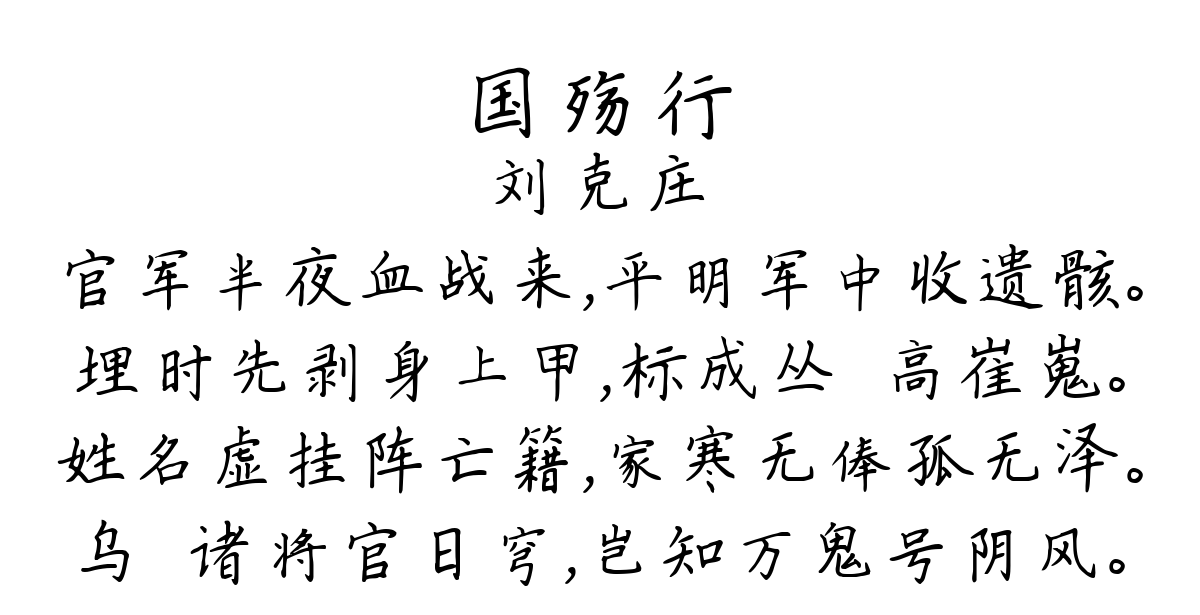 国殇行
刘克庄
官军半夜血战来,平明军中收遗骸。
埋时先剥身上甲,标成丛 高崔嵬。
姓名虚挂阵亡籍,家寒无俸孤无泽。
乌 诸将官日穹,岂知万鬼号阴风。